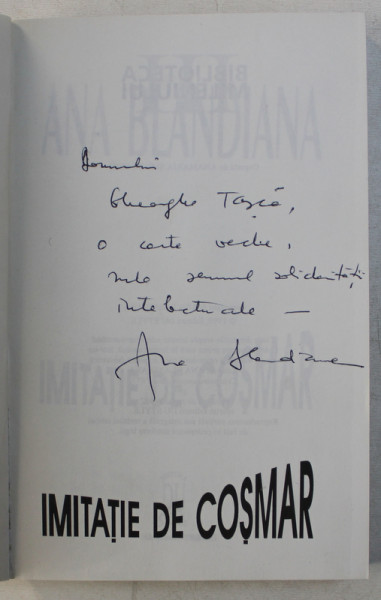 BIBLIOTECA
MILENIULUI
ANA BLANDIANA
Domnului
Gheorghe Tașcă,
o carte veche,
sub semnul solidarității
intelectuale —
Ana Blandiana
IMITAȚIE DE COȘMAR
IMITAȚIE DE COȘMAR